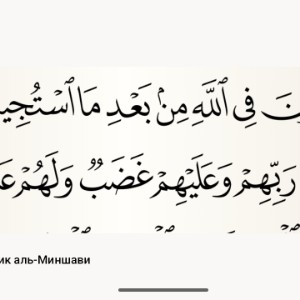 فِى ٱللَّهِ مِنۢ بَعْدِ مَا ٱسْتُجِي
رَبِّهِمْ وَعَلَيْهِمْ غَضَبٌ وَلَهُمْ عَ
ик аль-Миншави